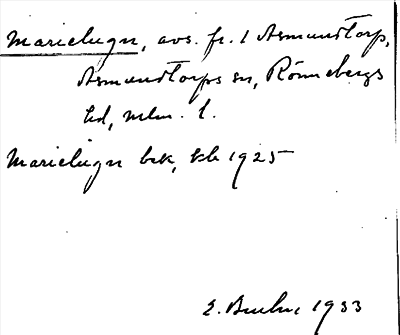 Marielugn, avs. fr. 1 Asmundtorp,
Asmundtorps sn, Rönnebergs
hd, mlm. l.
Marielugn bsk, kb 1925
E. 1933